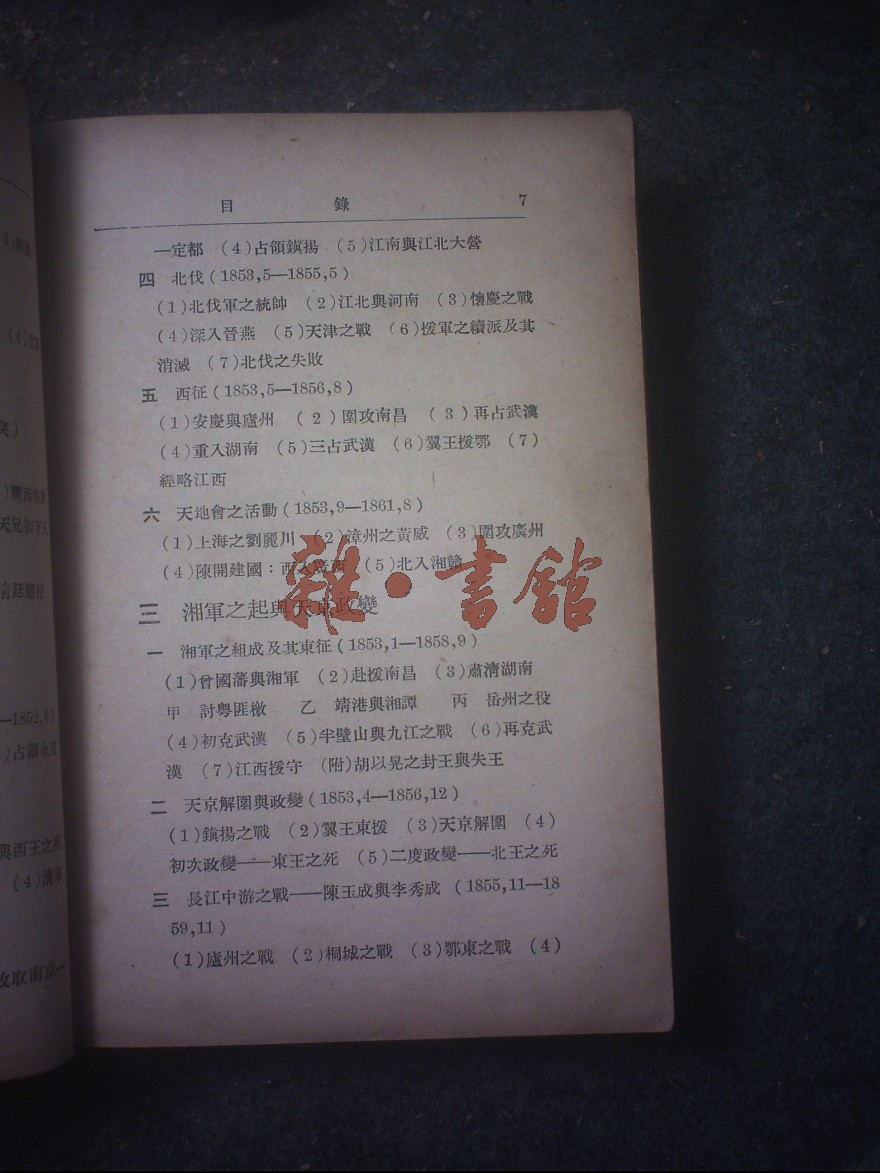 目錄 7
一定都 (4)占領鎮揚 (5)江南與江北大營
四 北伐(1853,5—1855,5)
(1)北伐軍之統帥 (2)江北與河南 (3)懷慶之戰
(4)深入晉燕 (5)天津之戰 (6)援軍之續派及其
消滅 (7)北伐之失敗
五 西征(1853,5—1856,8)
(1)安慶與廬州 (2)圍攻南昌 (3)再占武漢
(4)重入湖南 (5)三占武漢 (6)翼王援鄂 (7)
經略江西
六 天地會之活動(1853,9—1861,8)
(1)上海之劉麗川 (2)漳州之黃威 (3)圍攻廣州
(4)陳開建國:西入廣西 (5)北入湘贛
三 湘軍之起與天京政變
一 湘軍之組成及其東征(1853,1—1858,9)
(1)曾國藩與湘軍 (2)赴援南昌 (3)肅清湖南
甲 討粵匪檄 乙 靖港與湘譚 丙 岳州之役
(4)初克武漢 (5)半壁山與九江之戰 (6)再克武
漢 (7)江西援守 (附)胡以晃之封王與失王
二 天京解圍與政變(1853,4—1856,12)
(1)鎮揚之戰 (2)翼王東援 (3)天京解圍 (4)
初次政變——東王之死 (5)二度政變——北王之死
三 長江中游之戰——陳玉成與李秀成 (1855,11—18
59,11)
(1)廬州之戰 (2)桐城之戰 (3)鄂東之戰 (4)
雜·書館
—1852,4)
)占領永安
與西王之死
(4)清軍
攻取南京—